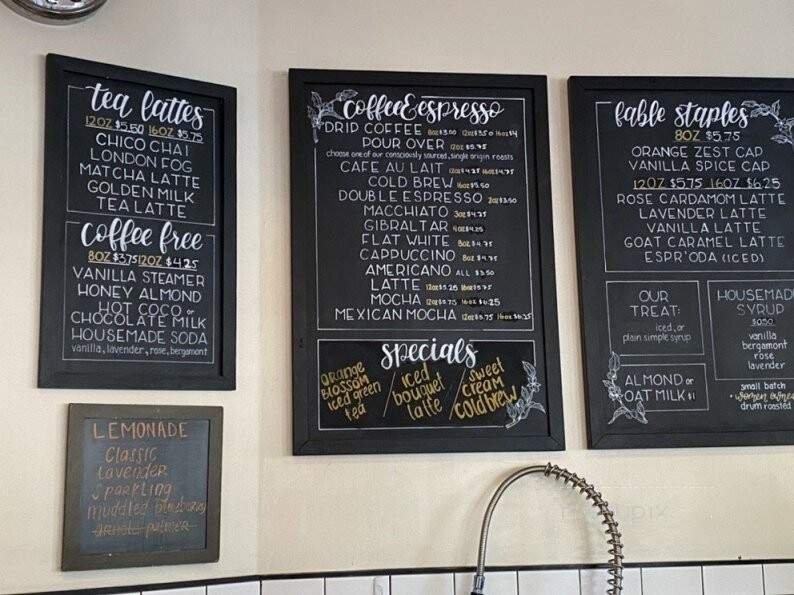 tea lattes
12OZ $5.50 16OZ $5.75
CHICO CHAI
LONDON FOG
MATCHA LATTE
GOLDEN MILK
TEA LATTE
coffee free
8OZ $3.75 12OZ $4.25
VANILLA STEAMER
HONEY ALMOND
HOT COCO or
CHOCOLATE MILK
HOUSEMADE SODA
vanilla, lavender, rose, bergamont
LEMONADE
classic
lavender
sparkling
muddled blueberry
arnold palmer
coffee & espresso
DRIP COFFEE 8oz $3.00 12oz $3.50 16oz $4
POUR OVER 12oz $5.75
choose one of our consciously sourced, single origin roasts
CAFE AU LAIT 12oz $4.25 16oz $4.75
COLD BREW 16oz $5.50
DOUBLE ESPRESSO 2oz $3.50
MACCHIATO 3oz $4.25
GIBRALTAR 4oz $4.25
FLAT WHITE 8oz $4.75
CAPPUCCINO 8oz $4.75
AMERICANO ALL $3.50
LATTE 12oz $5.25 16oz $5.75
MOCHA 12oz $5.75 16oz $6.25
MEXICAN MOCHA 12oz $5.75 16oz $6.25
specials
orange
blossom
iced green
tea
/ iced
bouquet
latte
/ sweet
cream
cold brew
fable staples
8OZ $5.75
ORANGE ZEST CAP
VANILLA SPICE CAP
12OZ $5.75 16OZ $6.25
ROSE CARDAMOM LATTE
LAVENDER LATTE
VANILLA LATTE
GOAT CARAMEL LATTE
ESPR'ODA (ICED)
OUR
TREAT:
iced, or
plain simple syrup
ALMOND or
OAT MILK $1
HOUSEMADE
SYRUP
$0.50
vanilla
bergamont
rose
lavender
small batch
• women owned
drum roasted